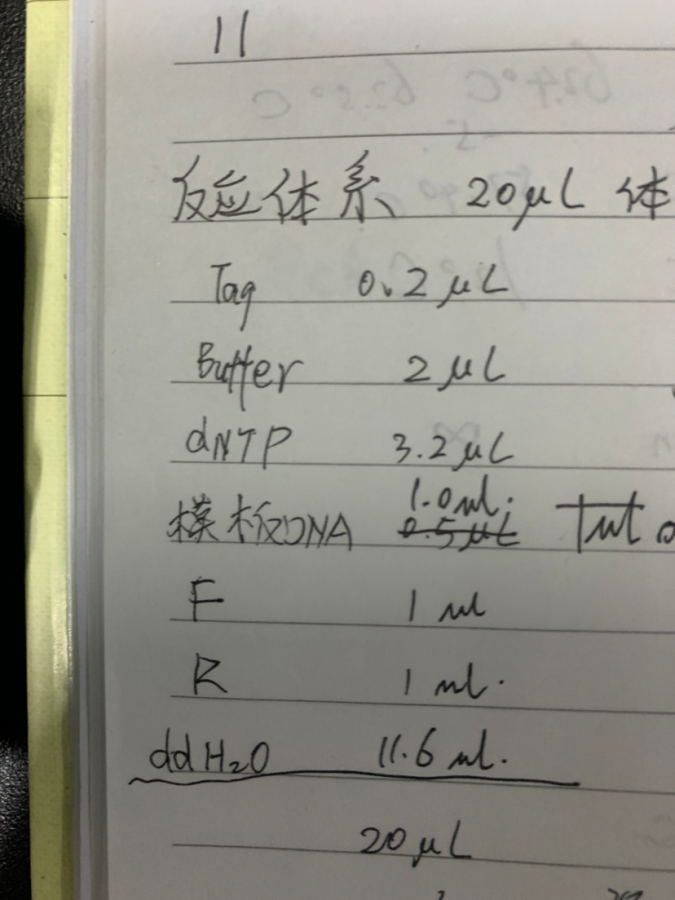 11
反应体系 20μL 体
Taq 0.2μL
Buffer 2μL
dNTP 3.2μL
1.0μl.
模板DNA 0.5μL
F 1μl
R 1μl.
ddH2O 11.6μl.
20μL